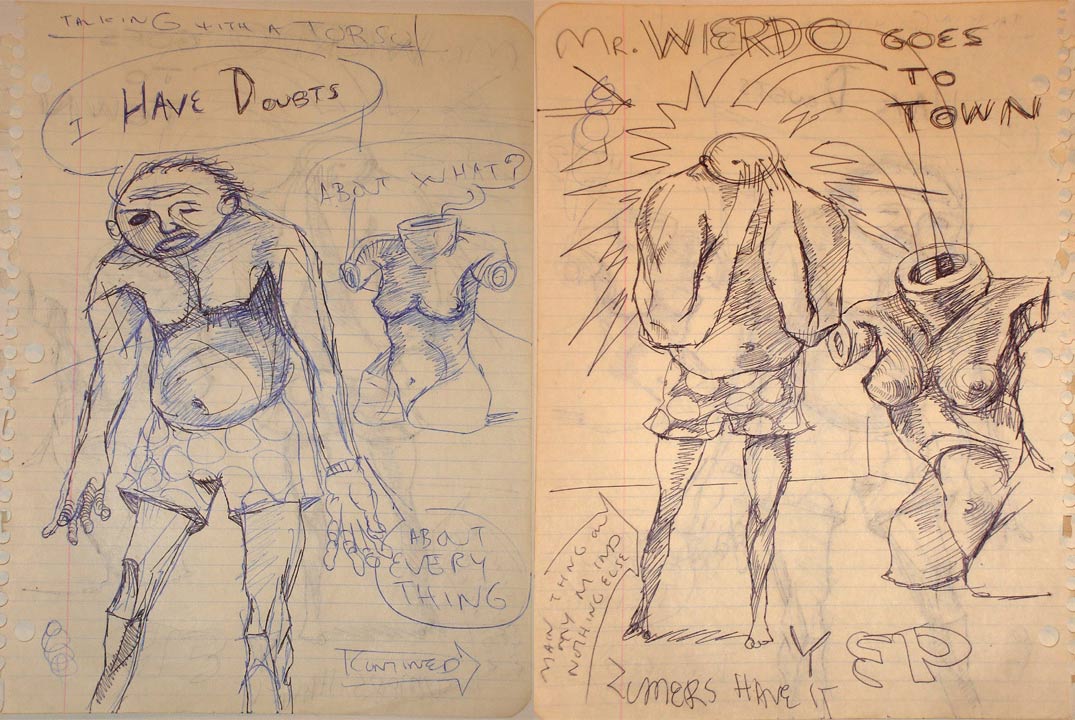 TALKING WITH A TORSO
I HAVE DOUBTS
ABOUT WHAT?
ABOUT
EVERY
THING
CONTINED
MR. WIERDO GOES
TO
TOWN
MAIN THING ON
MY MIND
NOTHING ELSE
YEP
RUMERS HAVE IT